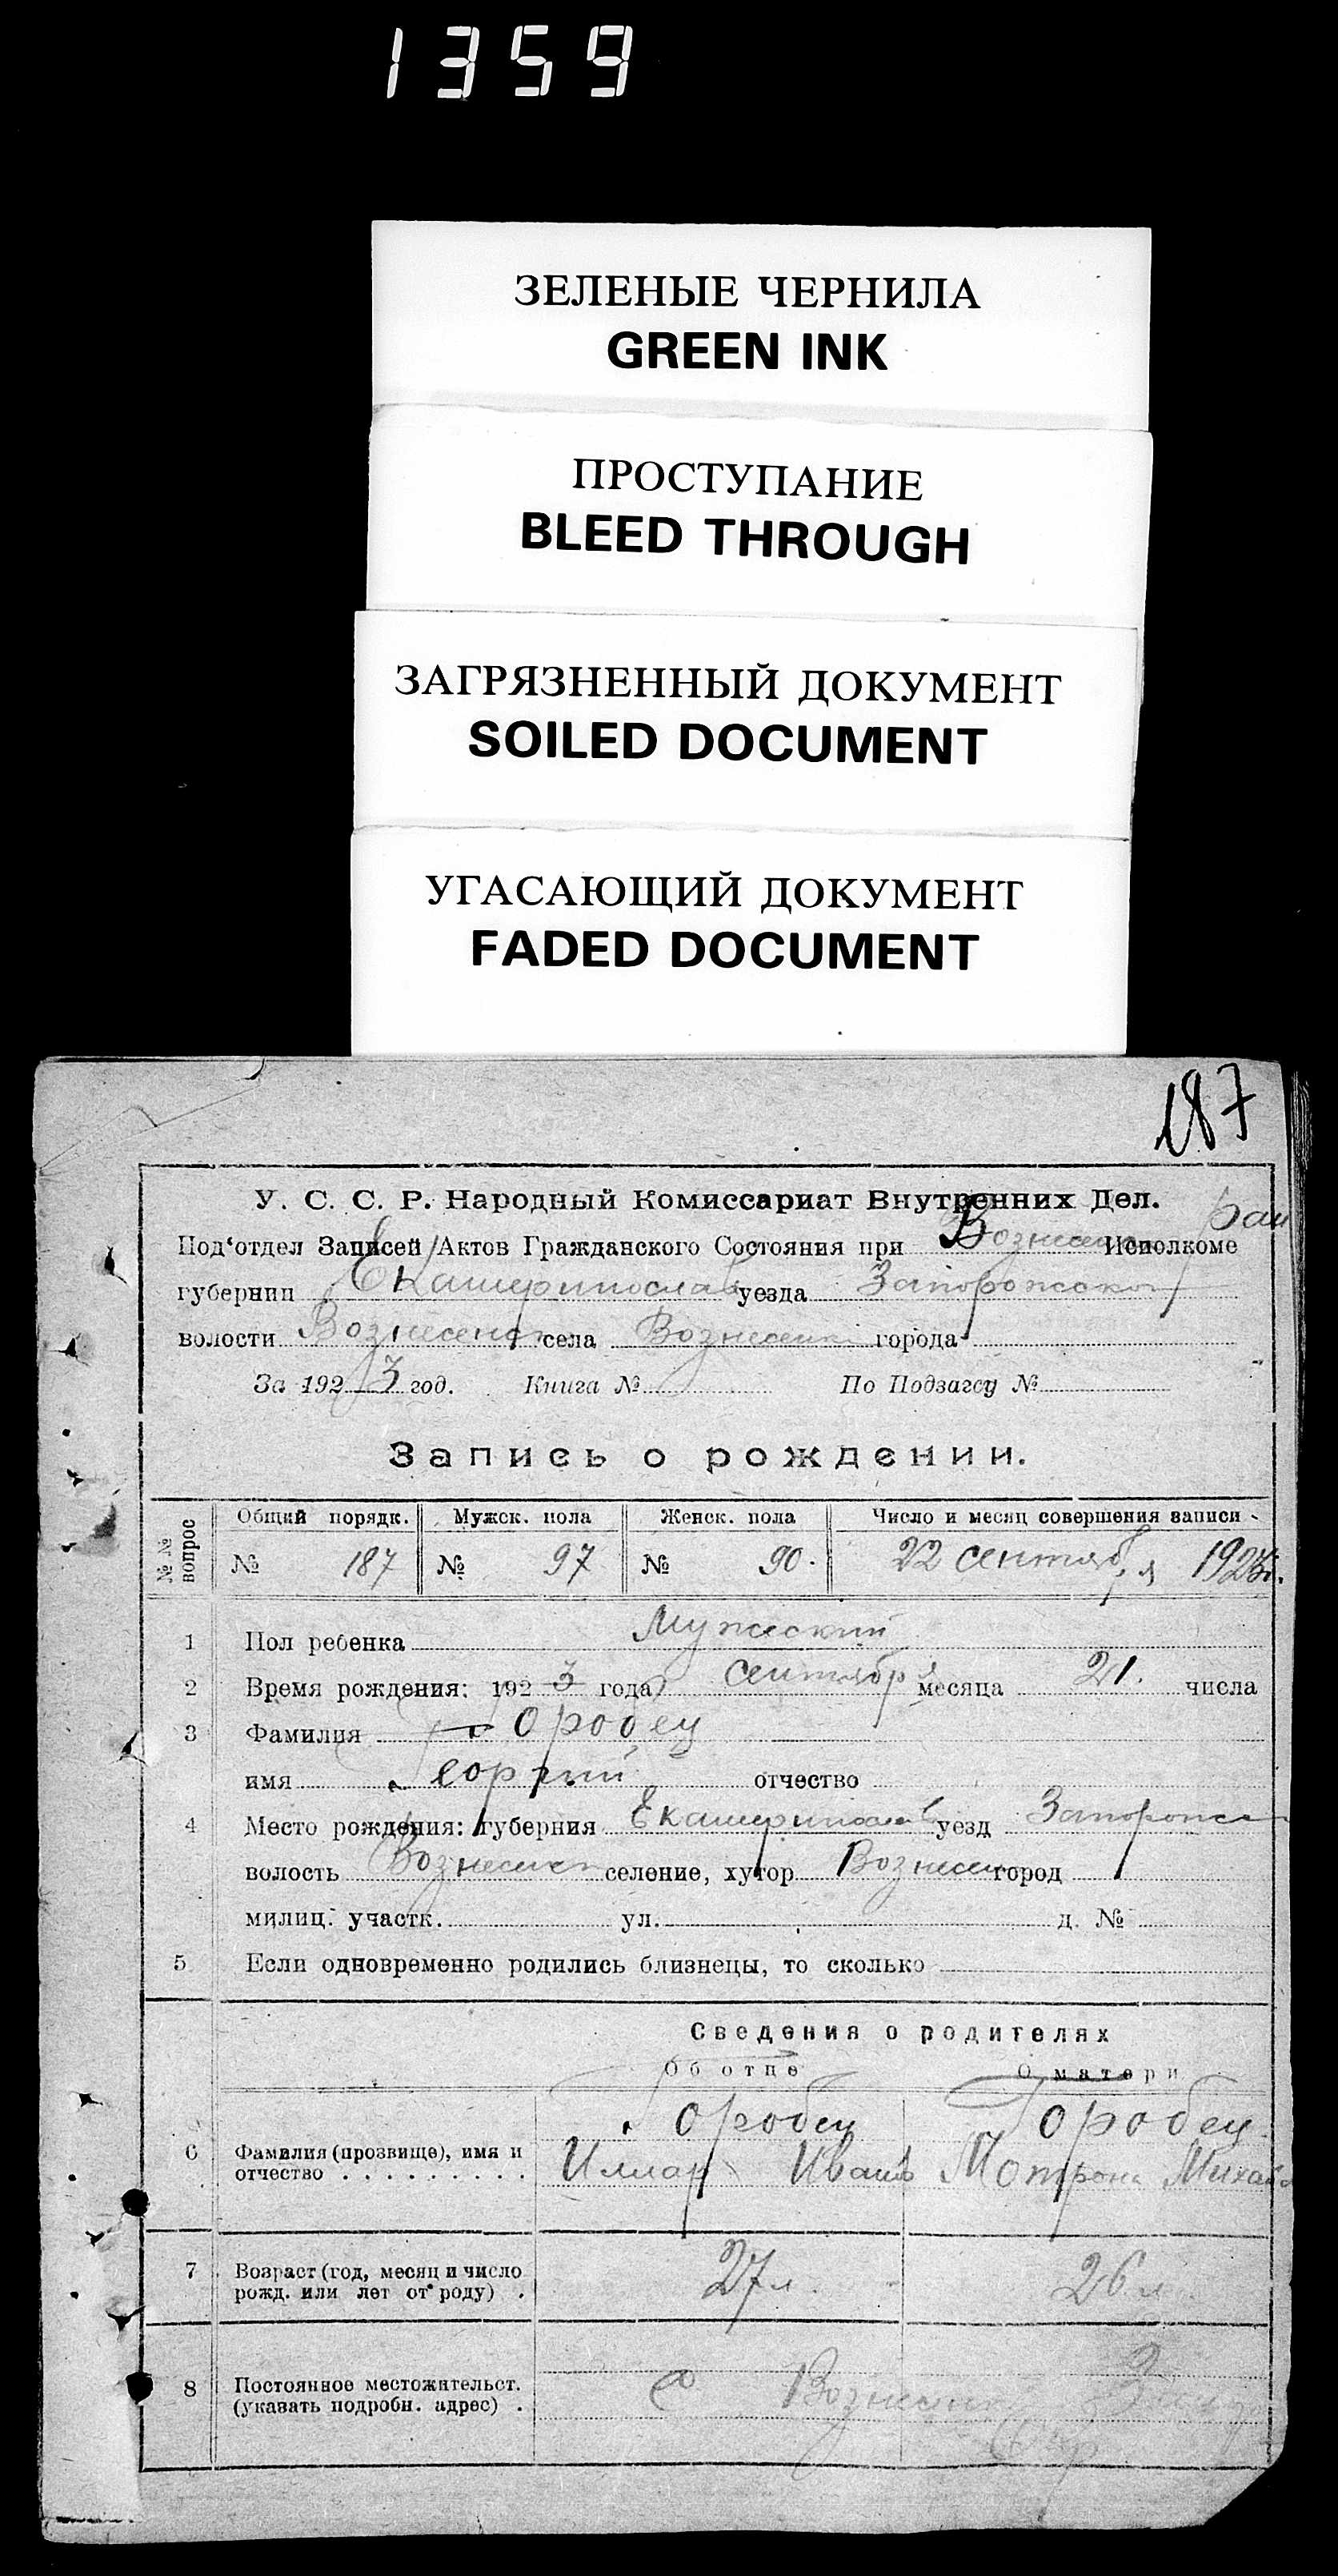 1359
ЗЕЛЕНЫЕ ЧЕРНИЛА
GREEN INK
ПРОСТУПАНИЕ
BLEED THROUGH
ЗАГРЯЗНЕННЫЙ ДОКУМЕНТ
SOILED DOCUMENT
УГАСАЮЩИЙ ДОКУМЕНТ
FADED DOCUMENT
187
У. С. С. Р. Народный Комиссариат Внутренних Дел.
Под'отдел Записей Актов Гражданского Состояния при Вознесен Рай Исполкоме
губернии Екатеринослав уезда Запорожском
волости Вознесенск села Вознесенки города
За 1923 год. Книга № По Подзагсу №
Запись о рождении.
№№ вопрос Общий порядк. Мужск. пола Женск. пола Число и месяц совершения записи
№ 187 № 97 № 90. 22 сентября 1923г.
1 Пол ребенка Мужский
2 Время рождения: 1923 года сентябр месяца 21. числа
3 Фамилия Горобец
имя Георгий отчество
4 Место рождения: губерния Екатеринослав уезд Запорожск
волость Вознесенск селение, хутор Вознесен город
милиц. участк. ул. д. №
5 Если одновременно родились близнецы, то сколько
Сведения о родителях
Об отце О матери
Горобец Горобец
6 Фамилия (прозвище), имя и
отчество . . . . . . . . . Иллар Иванов Мотрона Михайл
7 Возраст (год, месяц и число
рожд. или лет от роду) . 27 л. 26 л
8 Постоянное местожительст.
(указать подробн. адрес) . с Вознесенк